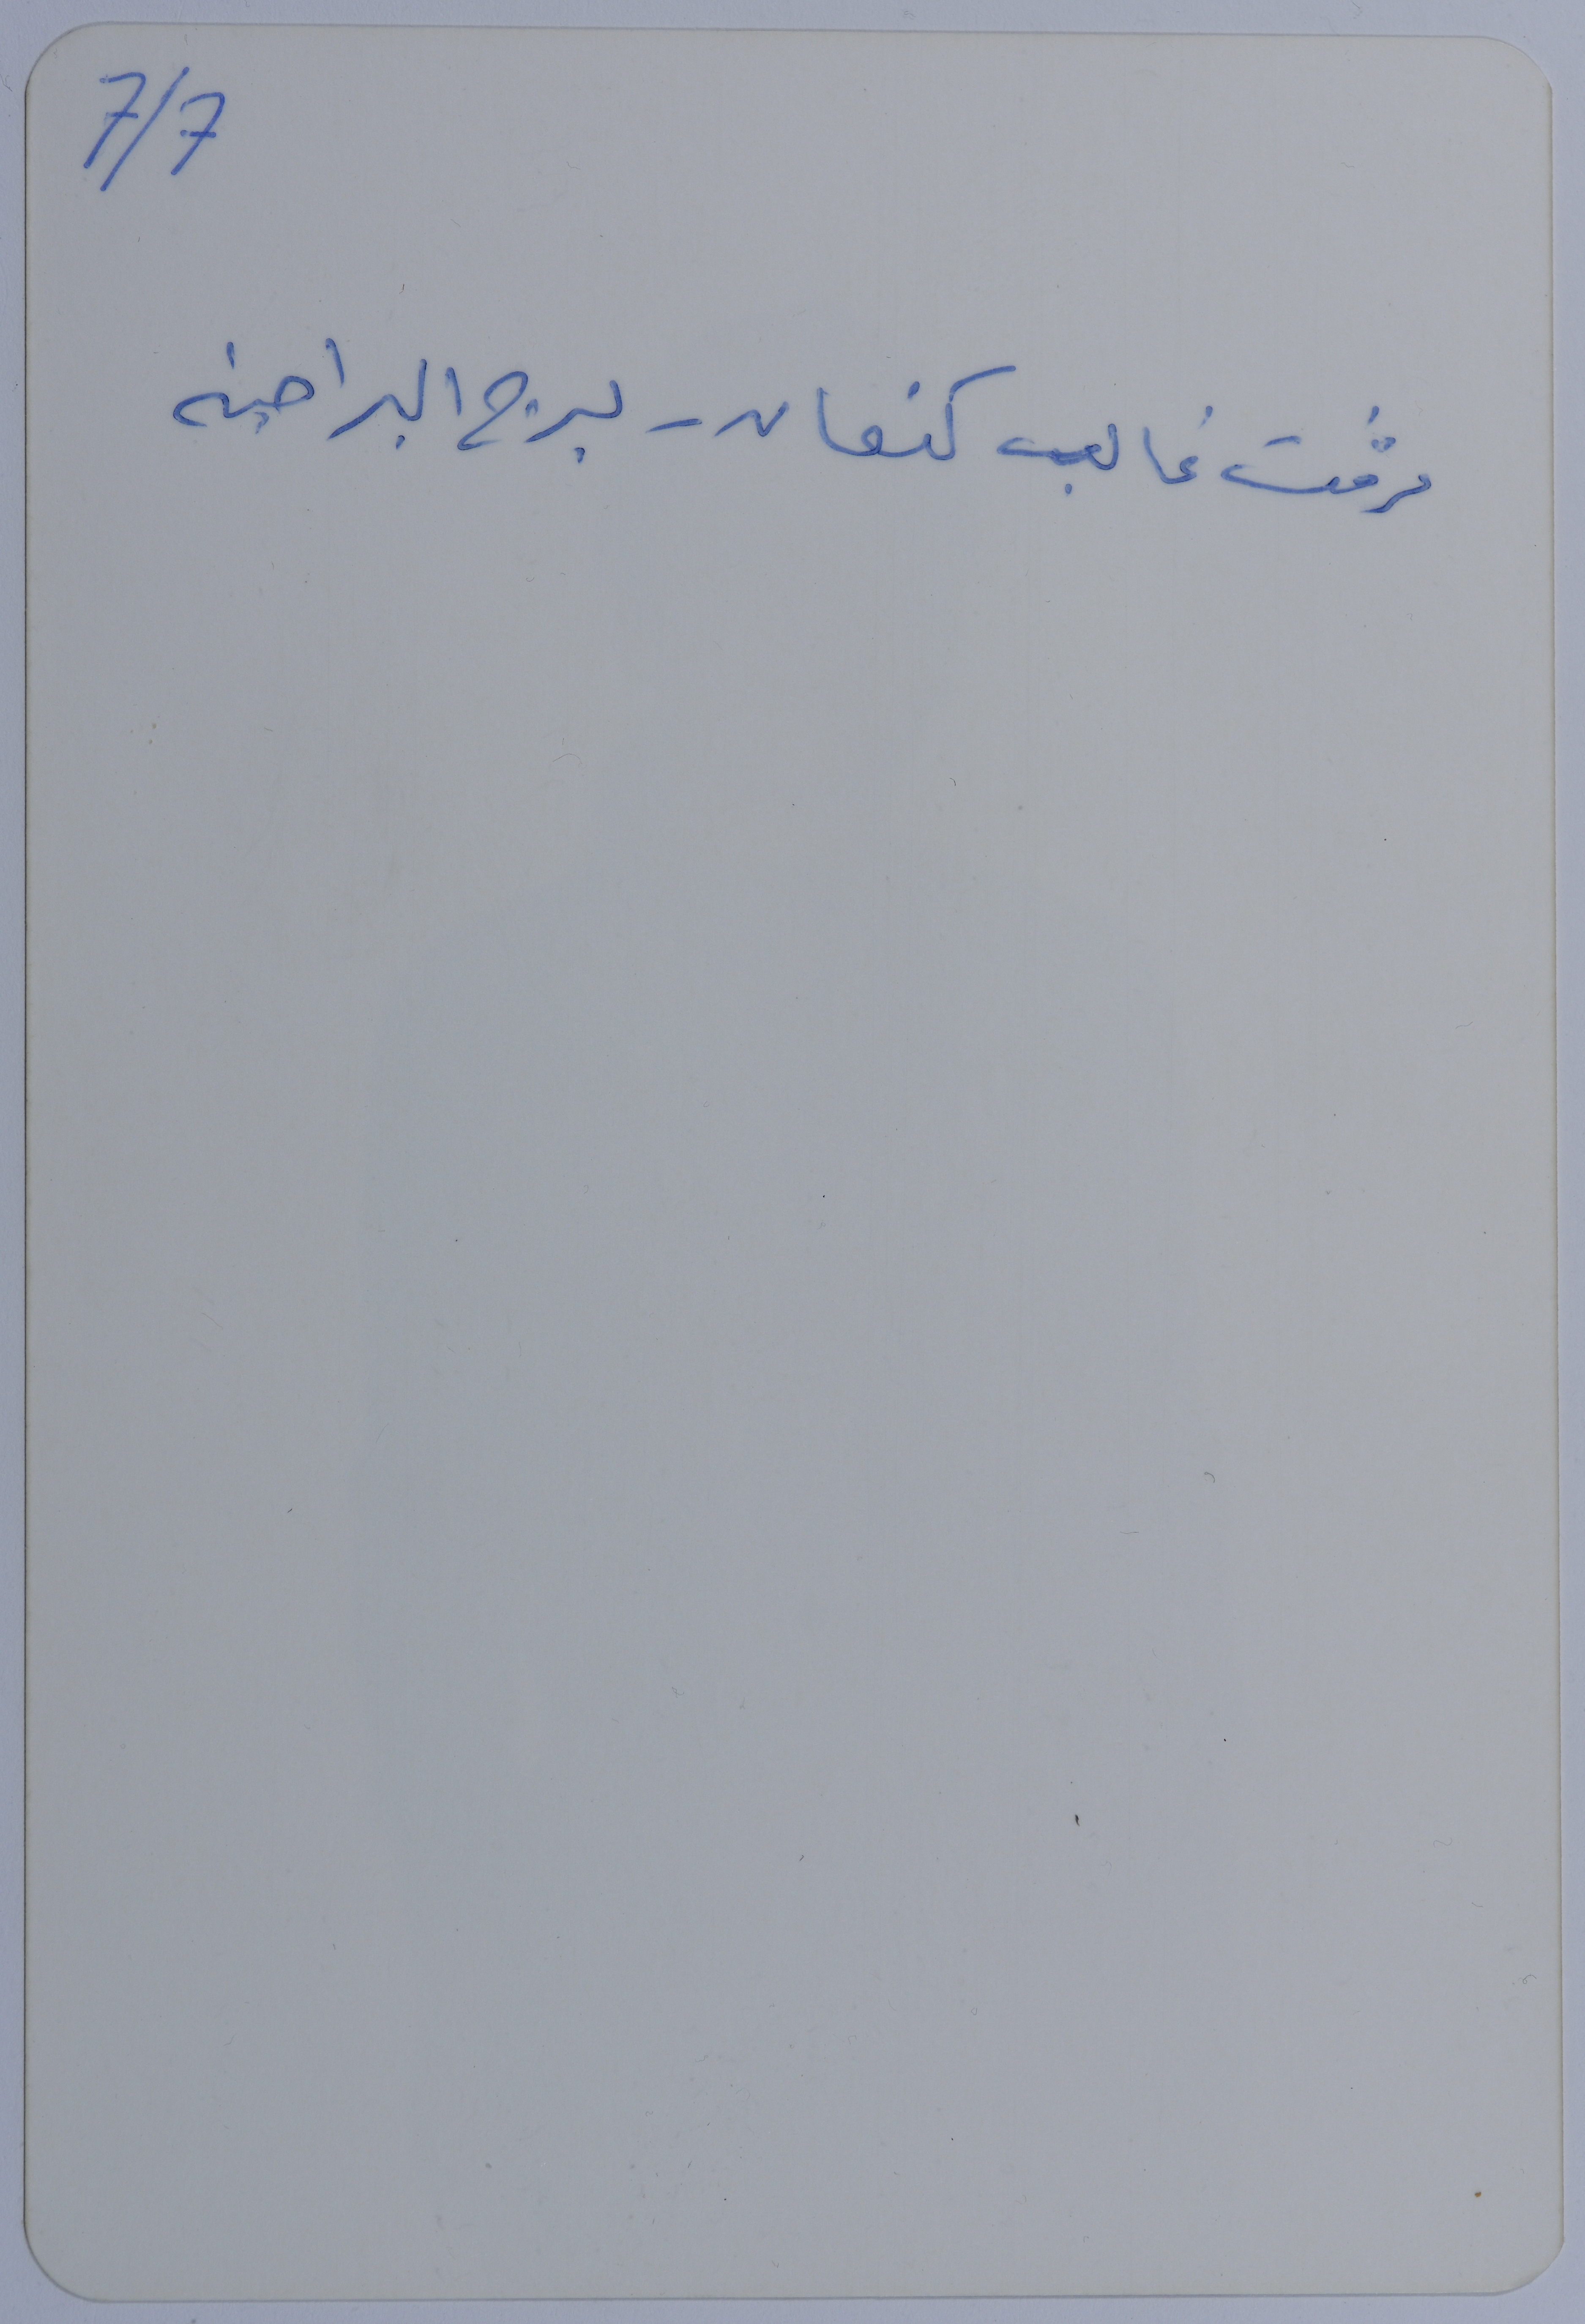 7/7
مرفت غالب كنعان - برج البراجنه